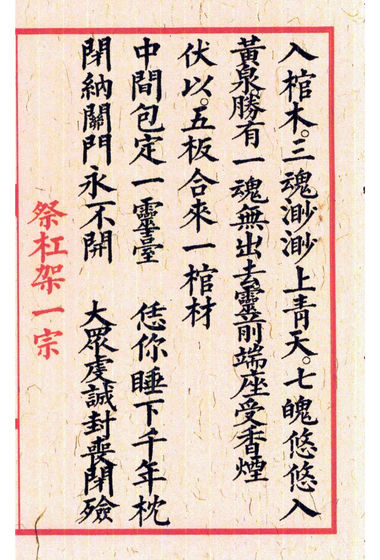 入棺木。三魂渺渺上青天。七魄悠悠入
黃泉勝有一魂無出去靈前端座受香煙
伏以。五板合來一棺材
中間包定一靈臺 恁你睡下千年枕
閉納關門永不開 大眾虔誠封喪閉殮
祭杠架一宗